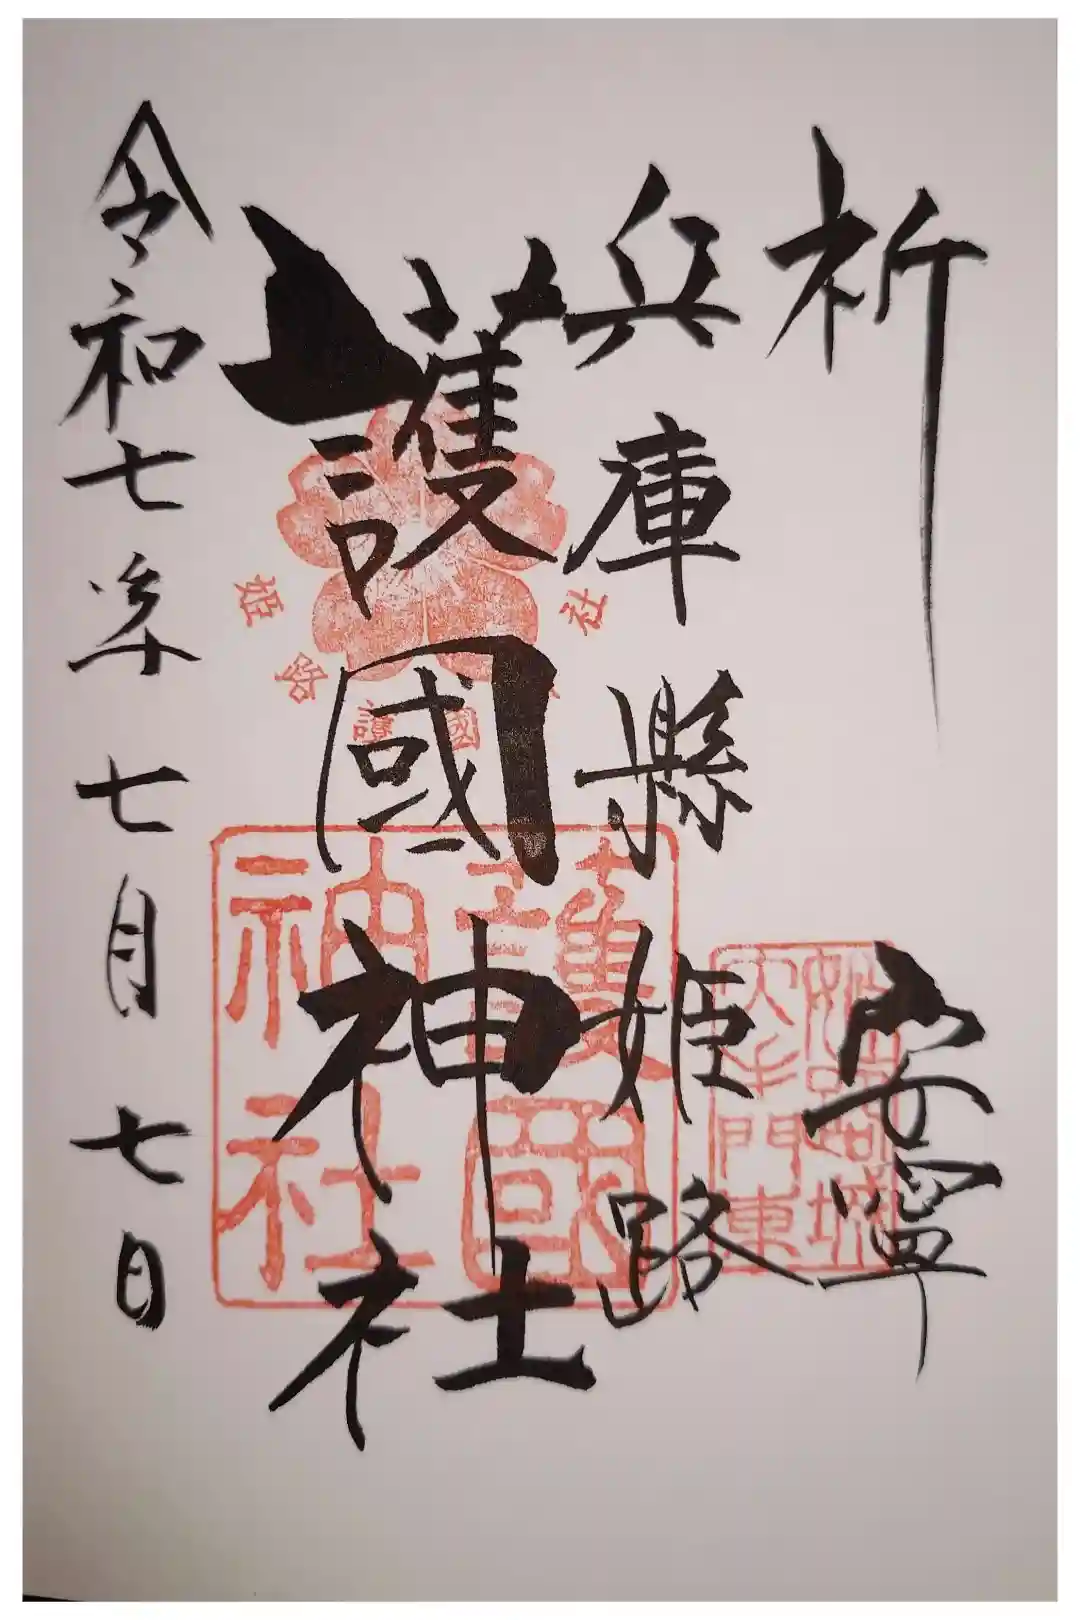 祈安寧
兵庫縣姫路
護國神社
令和七年七月七日
姫路護國神社
護國神社
姫路城
大手門東